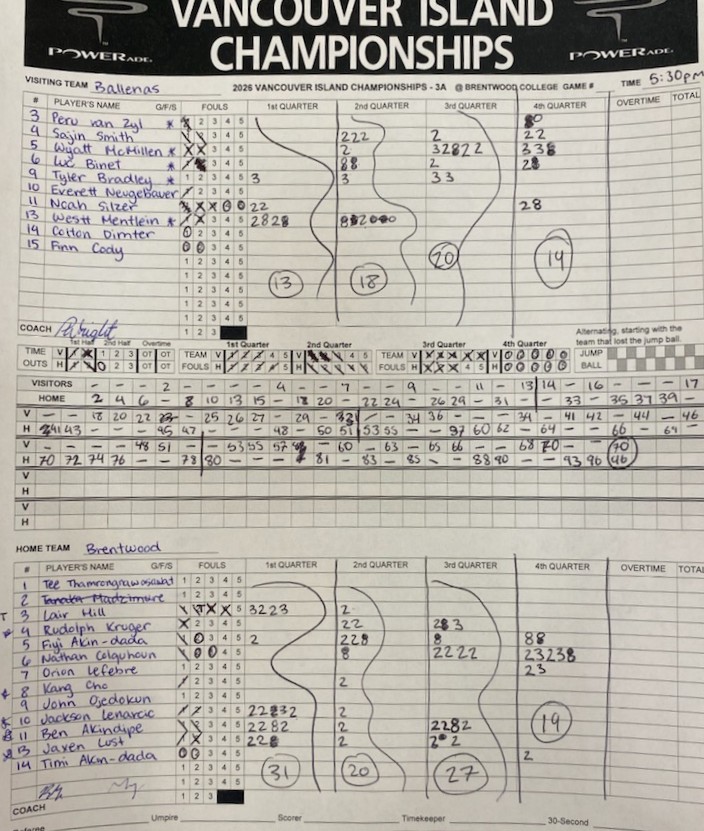 VANCOUVER ISLAND
CHAMPIONSHIPS
POWERADE
POWERADE
VISITING TEAM Ballenas 2026 VANCOUVER ISLAND CHAMPIONSHIPS - 3A @ BRENTWOOD COLLEGE GAME # TIME 5:30pm
# PLAYER'S NAME G/F/S FOULS 1st QUARTER 2nd QUARTER 3rd QUARTER 4th QUARTER OVERTIME TOTAL
3 Peru van Zyl * 2 3 4 5
4 Sajin Smith 3 4 5 222 2 22
5 Wyatt McMillen * X X 3 4 5 2 32822 338
6 Luc Binet * 3 4 5 2
9 Tyler Bradley * 1 2 3 4 5 3 3 33
10 Everett Neugebauer 2 3 4 5
11 Noah Silzer 22 28
13 Westt Mentlein * 3 4 5 2828
14 Colton Dimter 0 2 3 4 5
15 Finn Cody 0 0 3 4 5
1 2 3 4 5
1 2 3 4 5
1 2 3 4 5
1 2 3 4 5
13 18 20 14
COACH Wright 1 2 3
1st Half 2nd Half Overtime 1st Quarter 2nd Quarter 3rd Quarter 4th Quarter Alternating, starting with the team that lost the jump ball.
TIME OUTS V 1 2 3 OT OT TEAM FOULS V 4 5 V 4 5 TEAM FOULS V V 0 0 0 0 0 JUMP BALL
H 2 3 OT OT H H H 4 5 H 0 0 0 0 0
VISITORS - - - 2 - - - 4 - - 7 - - 9 - - 11 - 13 14 - 16 - - - 17
HOME 2 4 6 - 8 10 13 15 - 18 20 - 22 24 - 26 29 - 31 - - 33 - 35 37 39 -
V - - 18 20 22 - 25 26 27 - 29 - - - 34 36 - - - - 41 42 - 44 - 46
H 41 43 - - - 45 47 - - - 48 - 50 51 53 55 - - 57 60 62 - 64 - - 66 - 69
V - - - - 48 51 - - 53 55 57 - 60 - 63 - 65 66 - - 68 70 - - - 70
H 70 72 74 76 - - 78 80 - - - 81 - 83 - 85 - - 88 90 - - 93 96
V
H
V
H
HOME TEAM Brentwood
# PLAYER'S NAME G/F/S FOULS 1st QUARTER 2nd QUARTER 3rd QUARTER 4th QUARTER OVERTIME TOTAL
1 Tee Thamrongrawasawat 1 2 3 4 5
2 Tanaka Madzimure 1 2 3 4 5
T 3 Lair Hill X X 5 3223 2
* 4 Rudolph Kruger X 2 3 4 5 22
5 Fiji Akin-dada 0 3 4 5 2 228 8 88
6 Nathan Colquhoun 0 0 4 5 8 2222 23238
7 Orion Lefebre 1 2 3 4 5 23
* 8 Kang Cho 2 3 4 5 2
9 John Ojedokun 1 2 3 4 5
* 10 Jackson Lenarcic 3 4 5 2
* 11 Ben Akindipe 3 4 5 2282 2 2282
* 13 Javen Lust 3 4 5 2
14 Timi Akin-dada 0 0 3 4 5 2
1 2 3 4 5
1 2 3 4 5
31 20 27 19
COACH 1 2 3
Umpire Scorer Timekeeper 30-Second